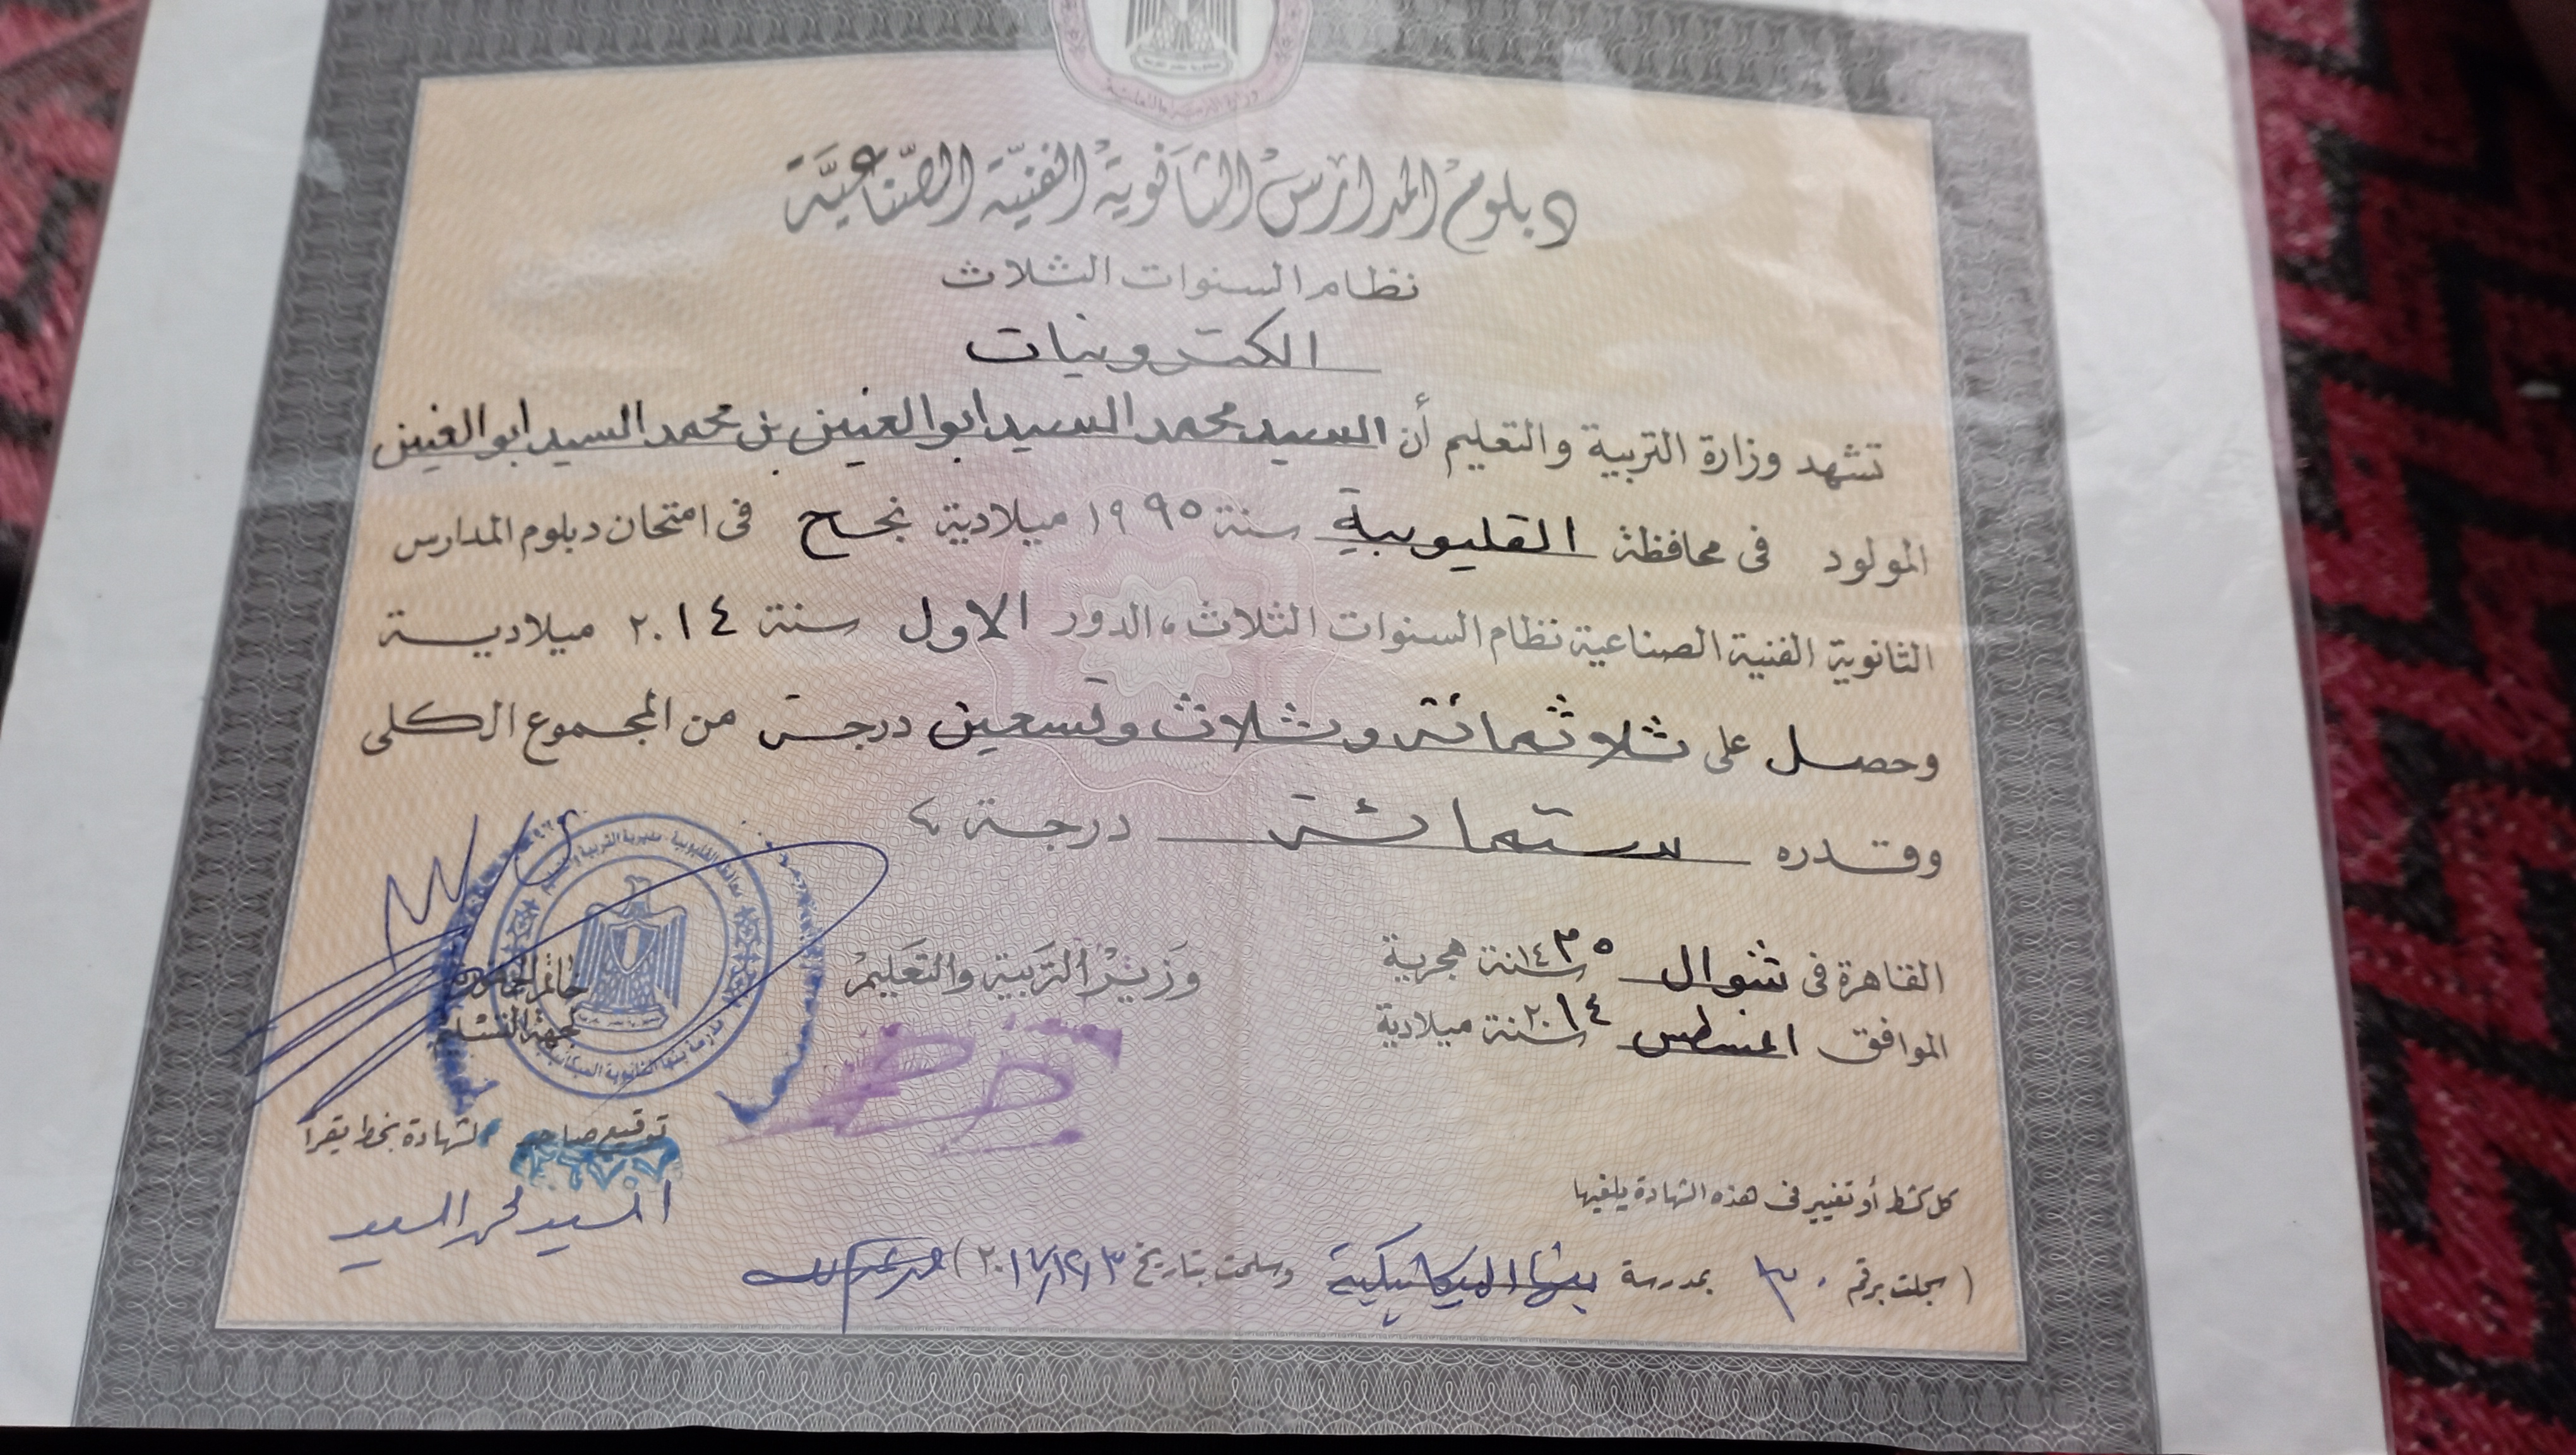 دبلوم المدارس الثانوية الفنية الصناعية
نظام السنوات الثلاث
الكترونيات
تشهد وزارة التربية والتعليم أن السيد محمد السيد ابو العنين بن محمد السيد ابو العنين
المولود فى محافظة القليوبية سنة ١٩٩٥ ميلادية نجح فى امتحان دبلوم المدارس
الثانوية الفنية الصناعية نظام السنوات الثلاث، الدور الاول سنة ٢٠١٤ ميلادية
وحصل على ثلاثمائة وثلاث وتسعين درجة من المجموع الكلى
وقدره ستمائة درجة ،
القاهرة فى شوال سنة ١٤٣٥ هجرية
الموافق اغسطس سنة ٢٠١٤ ميلادية
وزير التربية والتعليم
خاتم الجمهورية
لجهة
توقيع صاحب الشهادة بخط يقرأ
السيد محمد السيد
كل كشط أو تغيير فى هذه الشهادة يلغيها
( سجلت برقم ٣٠ بمدرسة بنها الميكانيكية وسلمت بتاريخ ٢٠١٧/١٢/٣ )